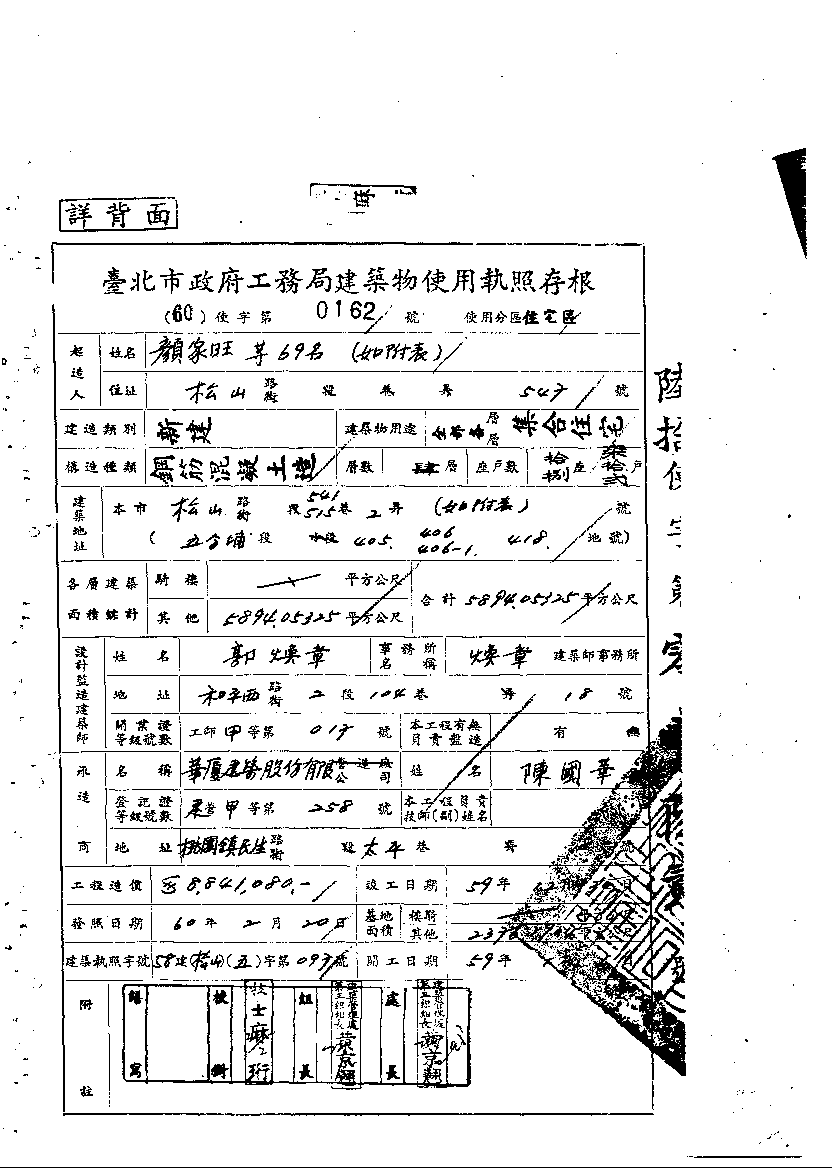 詳背面
臺北市政府工務局建築物使用執照存根
(60)使字第 0162 號 使用分區住宅區
起造人 姓名 顏家旺 等69名 (如附表)
住址 松山 路街 段 巷 弄 547 號
建造類別 新建 建築物用途 全部各層層 集合住宅
構造種類 鋼筋混凝土造 層數 肆層 座戶數 拾捌座 柒拾貳戶
建築地址 本市 松山 路街 段 541 515巷 2弄 (如附表) 號
( 五分埔段 小段 405. 406 406-1. 418. 地號)
各層建築面積總計 騎樓 平方公尺 合計 5894.05325 平方公尺
其他 5894.05325 平方公尺
設計監造建築師 姓名 郭煥章 事務所名稱 煥章 建築師事務所
地址 和平西 路街 2段 104巷 弄 18 號
開業證等級號數 工師甲等第 017 號 本工程有無負責監造 有 無
承造商 名稱 華廈建築股份有限公司 姓名 陳國華
登記證等級號數 甲等第 258 號 本工程負責技師(副)姓名
地址 桃園鎮民生 路街 段 太平巷 弄 號
工程造價 8,841,080.- 竣工日期 59年
發照日期 60年2月20日 基地面積 騎樓 其他
建築執照字號 58建(松山)(五)字第093號 開工日期 59年
附註 繕寫 校對 技士 組長 處長
陸拾使字第